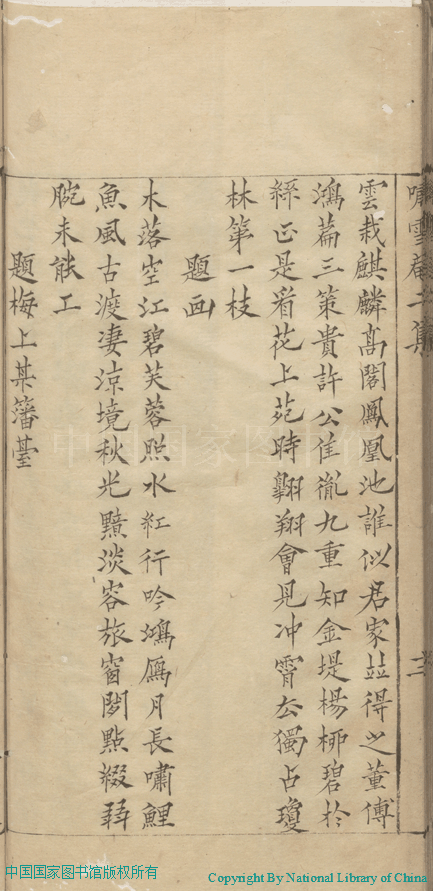 嘯雪菴二集
雲裁麒麟高閣鳳凰池誰似君家竝得之董傅
鴻篇三策貴許公佳胤九重知金堤楊柳碧於
絲正是看花上苑時翺翔會見冲霄去獨占瓊
林第一枝
題画
木落空江碧芙蓉照水紅行吟鴻鴈月長嘯鯉
魚風古渡凄涼境秋光黯淡容旅窗閒點綴
腕未能工
題梅上某籓臺
中国国家图书馆
中国国家图书馆版权所有
Copyright By National Library of China